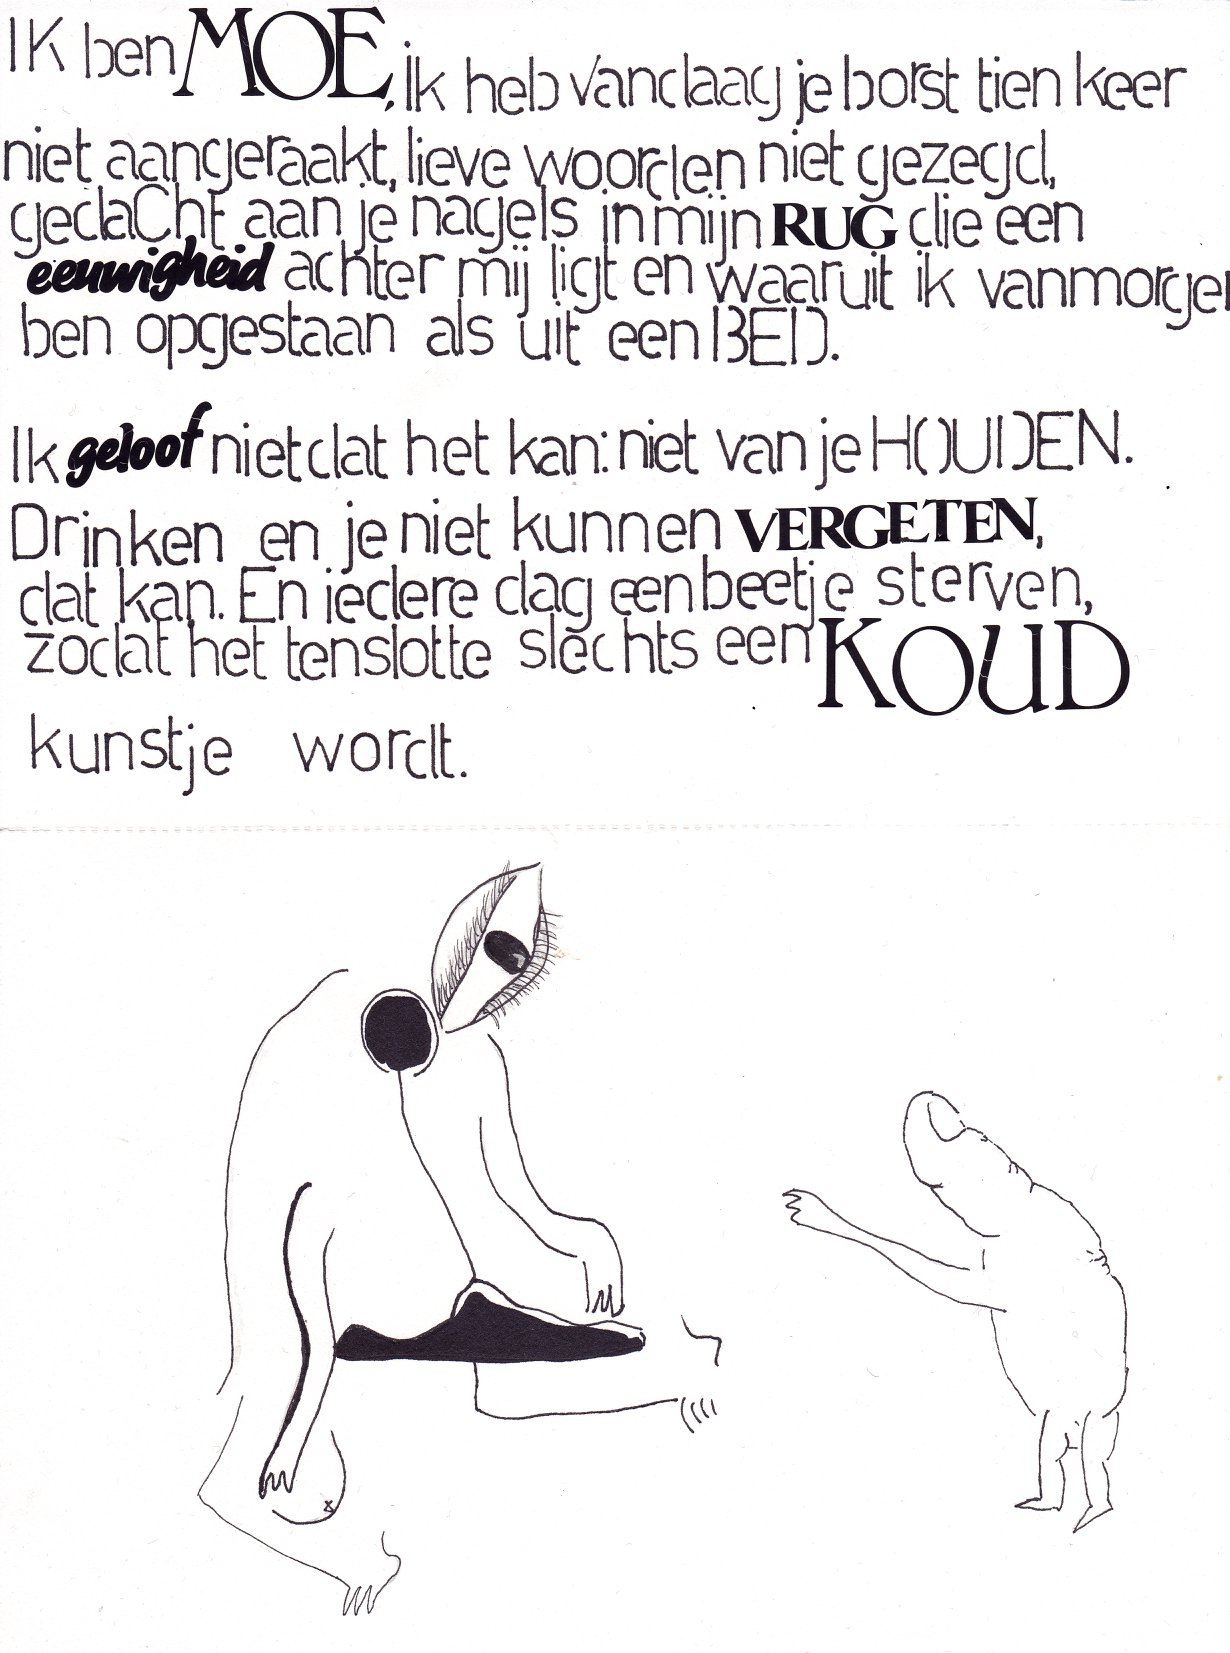 IK ben MOE, ik heb vandaag je borst tien keer
niet aangeraakt, lieve woorden niet gezegd,
gedaCht aan je nagels in mijn RUG die een
eeuwigheid achter mij ligt en waaruit ik vanmorgen
ben opgestaan als uit een BED.
Ik geloof niet dat het kan: niet van je HOUDEN.
Drinken en je niet kunnen VERGETEN,
dat kan. En iedere dag een beetje sterven,
zodat het tenslotte slechts een KOUD
kunstje wordt.